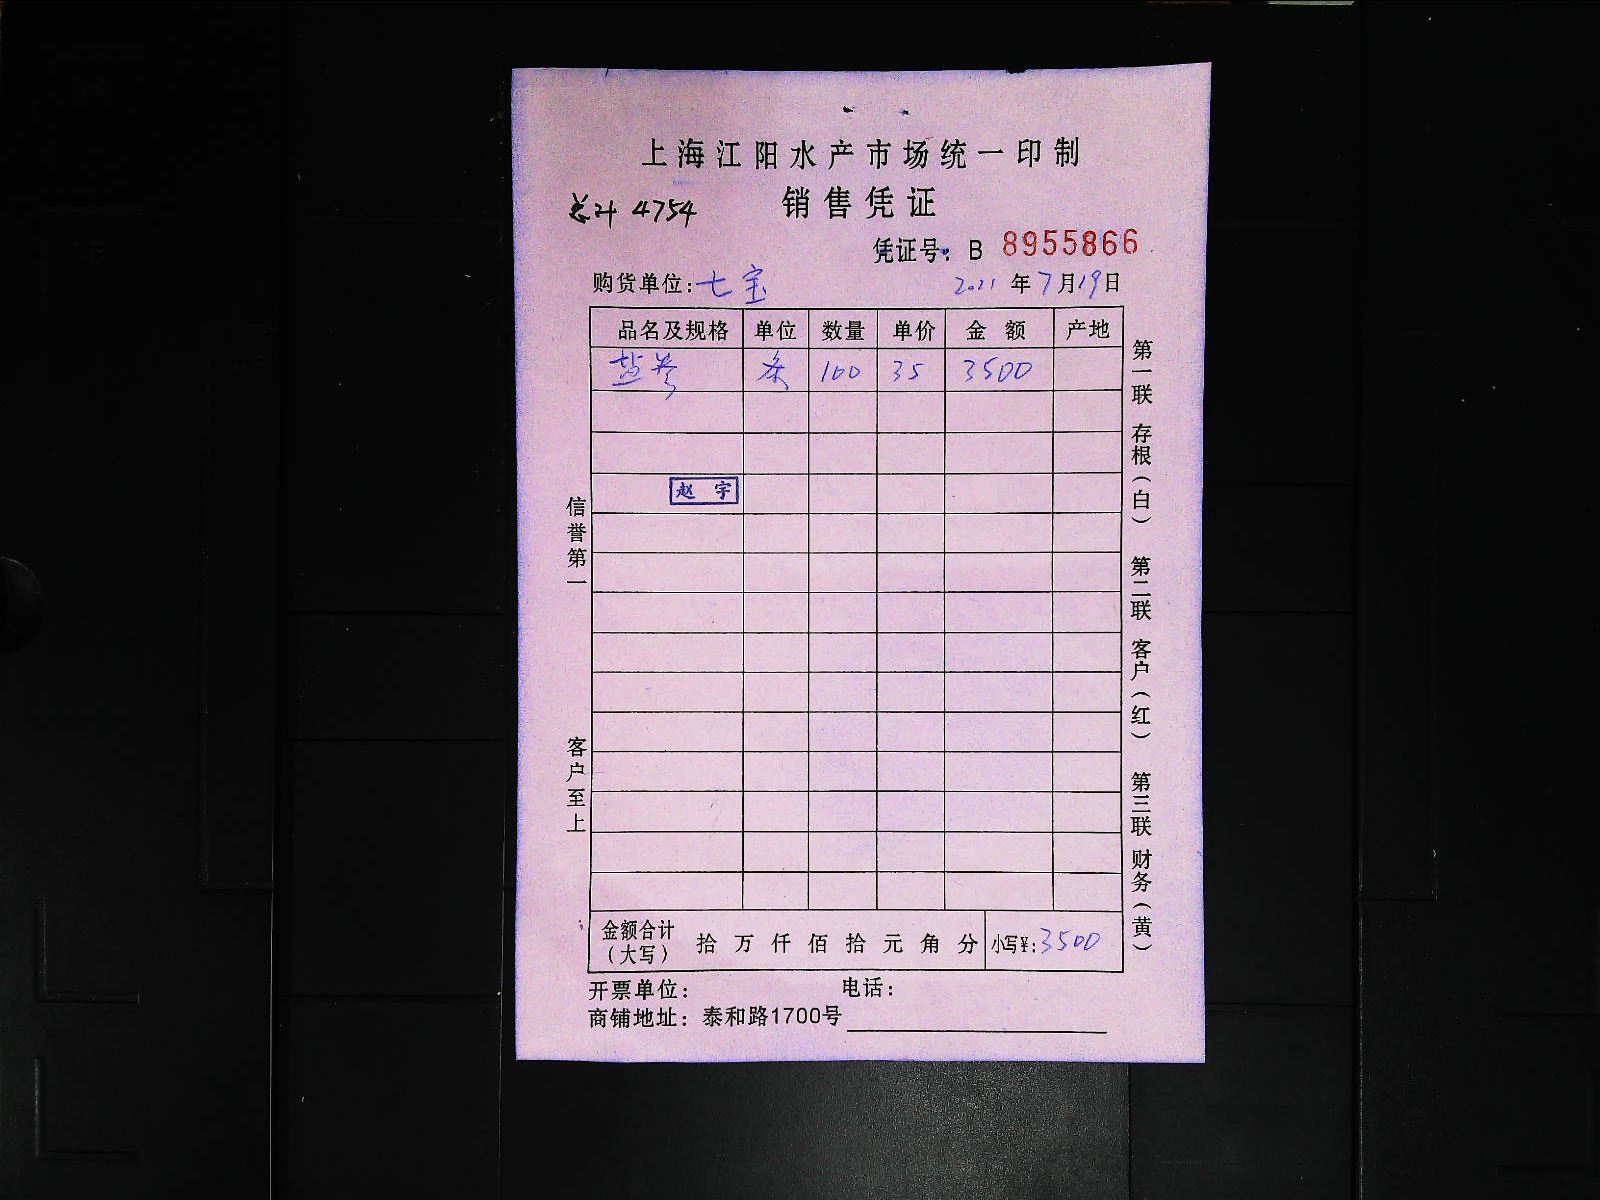 上海江阳水产市场统一印制
销售凭证
总计 4754
凭证号: B 8955866
购货单位: 七宝 2021年7月19日
品名及规格 单位 数量 单价 金额 产地
盐 条 100 35 3500
赵宇
信誉第一
客户至上
第一联 存根(白) 第二联 客户(红) 第三联 财务(黄)
金额合计(大写) 拾万仟佰拾元角分 小写¥: 3500
开票单位: 电话:
商铺地址: 泰和路1700号